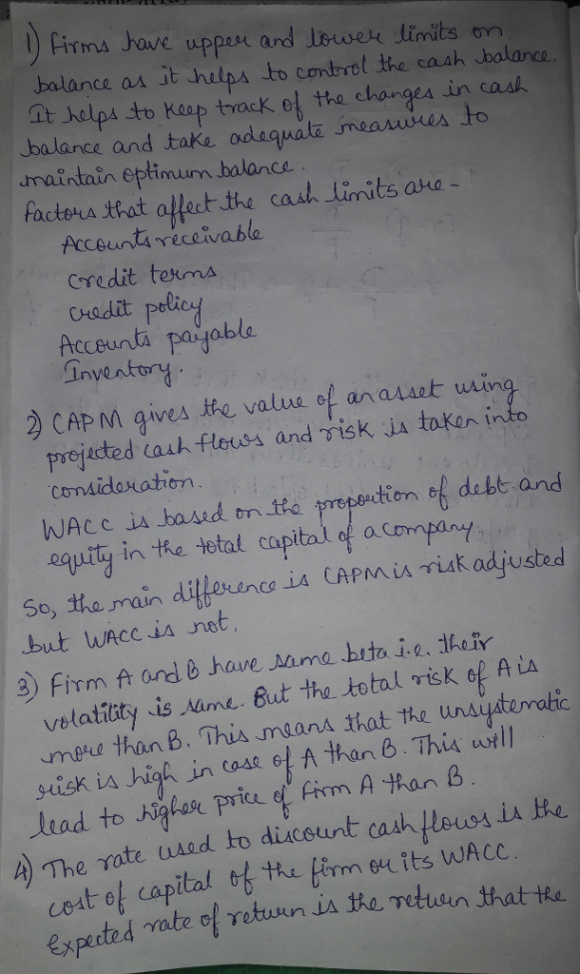 1) Firms have upper and lower limits on
balance as it helps to control the cash balance.
It helps to keep track of the changes in cash
balance and take adequate measures to
maintain optimum balance.
Factors that affect the cash limits are -
Accounts receivable
Credit terms
Credit policy
Accounts payable
Inventory.
2) CAPM gives the value of an asset using
projected cash flows and risk is taken into
consideration.
WACC is based on the proportion of debt and
equity in the total capital of a company.
So, the main difference is CAPM is risk adjusted
but WACC is not.
3) Firm A and B have same beta i.e. their
volatility is same. But the total risk of A is
more than B. This means that the unsystematic
risk is high in case of A than B. This will
lead to higher price of firm A than B.
4) The rate used to discount cash flows is the
cost of capital of the firm or its WACC.
Expected rate of return is the return that the